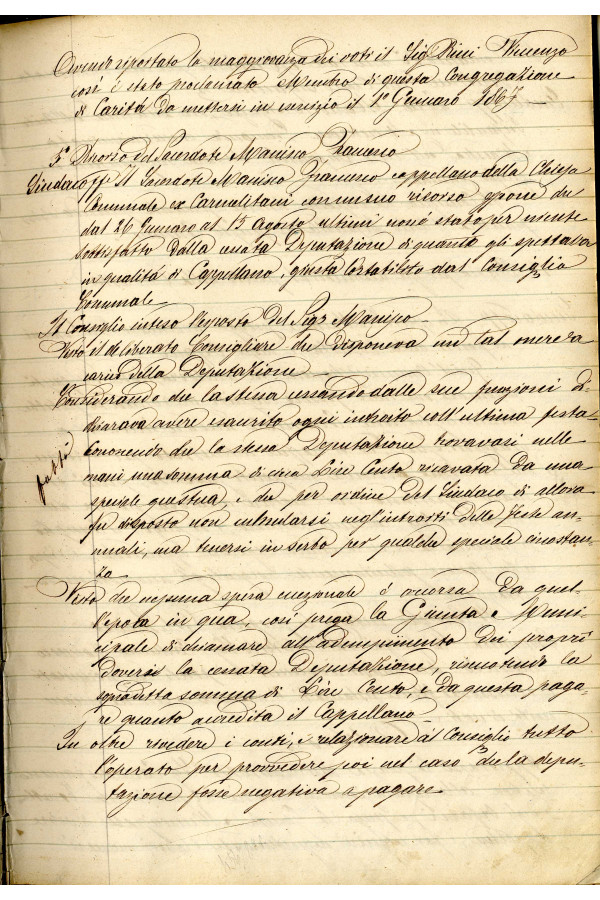 Avendo riportato la maggioranza dei voti il Sig Ricci Vincenzo
così è stato proclamato Membro di questa Congregazione
di Carità da mettersi in servizio il 1º Gennaro 1867
5º Ricorso del Sacerdote Manisco Francesco
Sindaco ff Il Sacerdote Manisco Francesco cappellano della Chiesa
Comunale ex Carmelitani con un suo ricorso espone che
dal 26 Gennaro al 15 Agosto ultimi non è stato per niente
sottisfatto dalla cennata Deputazione di quanto gli spettava
in qualità di Cappellano, giusta lo stabilito dal Consiglio
Comunale
Il Consiglio inteso l'esposto del Sigr Manisco
Visto il deliberato Consigliare che disponeva un tal onere a
carico della Deputazione
Considerando che la stessa cessando dalle sue funzioni di
chiarava avere esaurito ogni introito coll'ultima festa
Conoscendo che la stessa Deputazione trovavasi nelle
fatti
mani una somma di circa Lire Cento ricavata da una
speciale questua, e che per ordine del Sindaco di allora
fu disposto non calcolarsi negl'introiti delle feste an-
nuali, ma tenersi in serbo per qualche speciale circostan-
za
Visto che nessuna spesa eccezionale è occorsa da quel-
l'epoca in qua, così prega la Giunta Muni-
cipale di chiamare all'adempimento dei proprî
doveri la cennata Deputazione, rimettendo la
sopradetta somma di Lire Cento, e da questa paga-
re quanto accredita il Cappellano
In oltre rivedere i conti, e relazionare al Consiglio tutto
l'operato per provvedere poi nel caso che la depu-
tazione fosse negativa a pagare